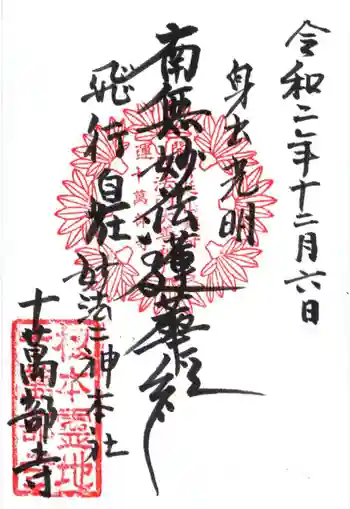 令和二年十二月六日
身出光明
南無妙法蓮華経
飛行自在
妙法二神本社
十萬部寺